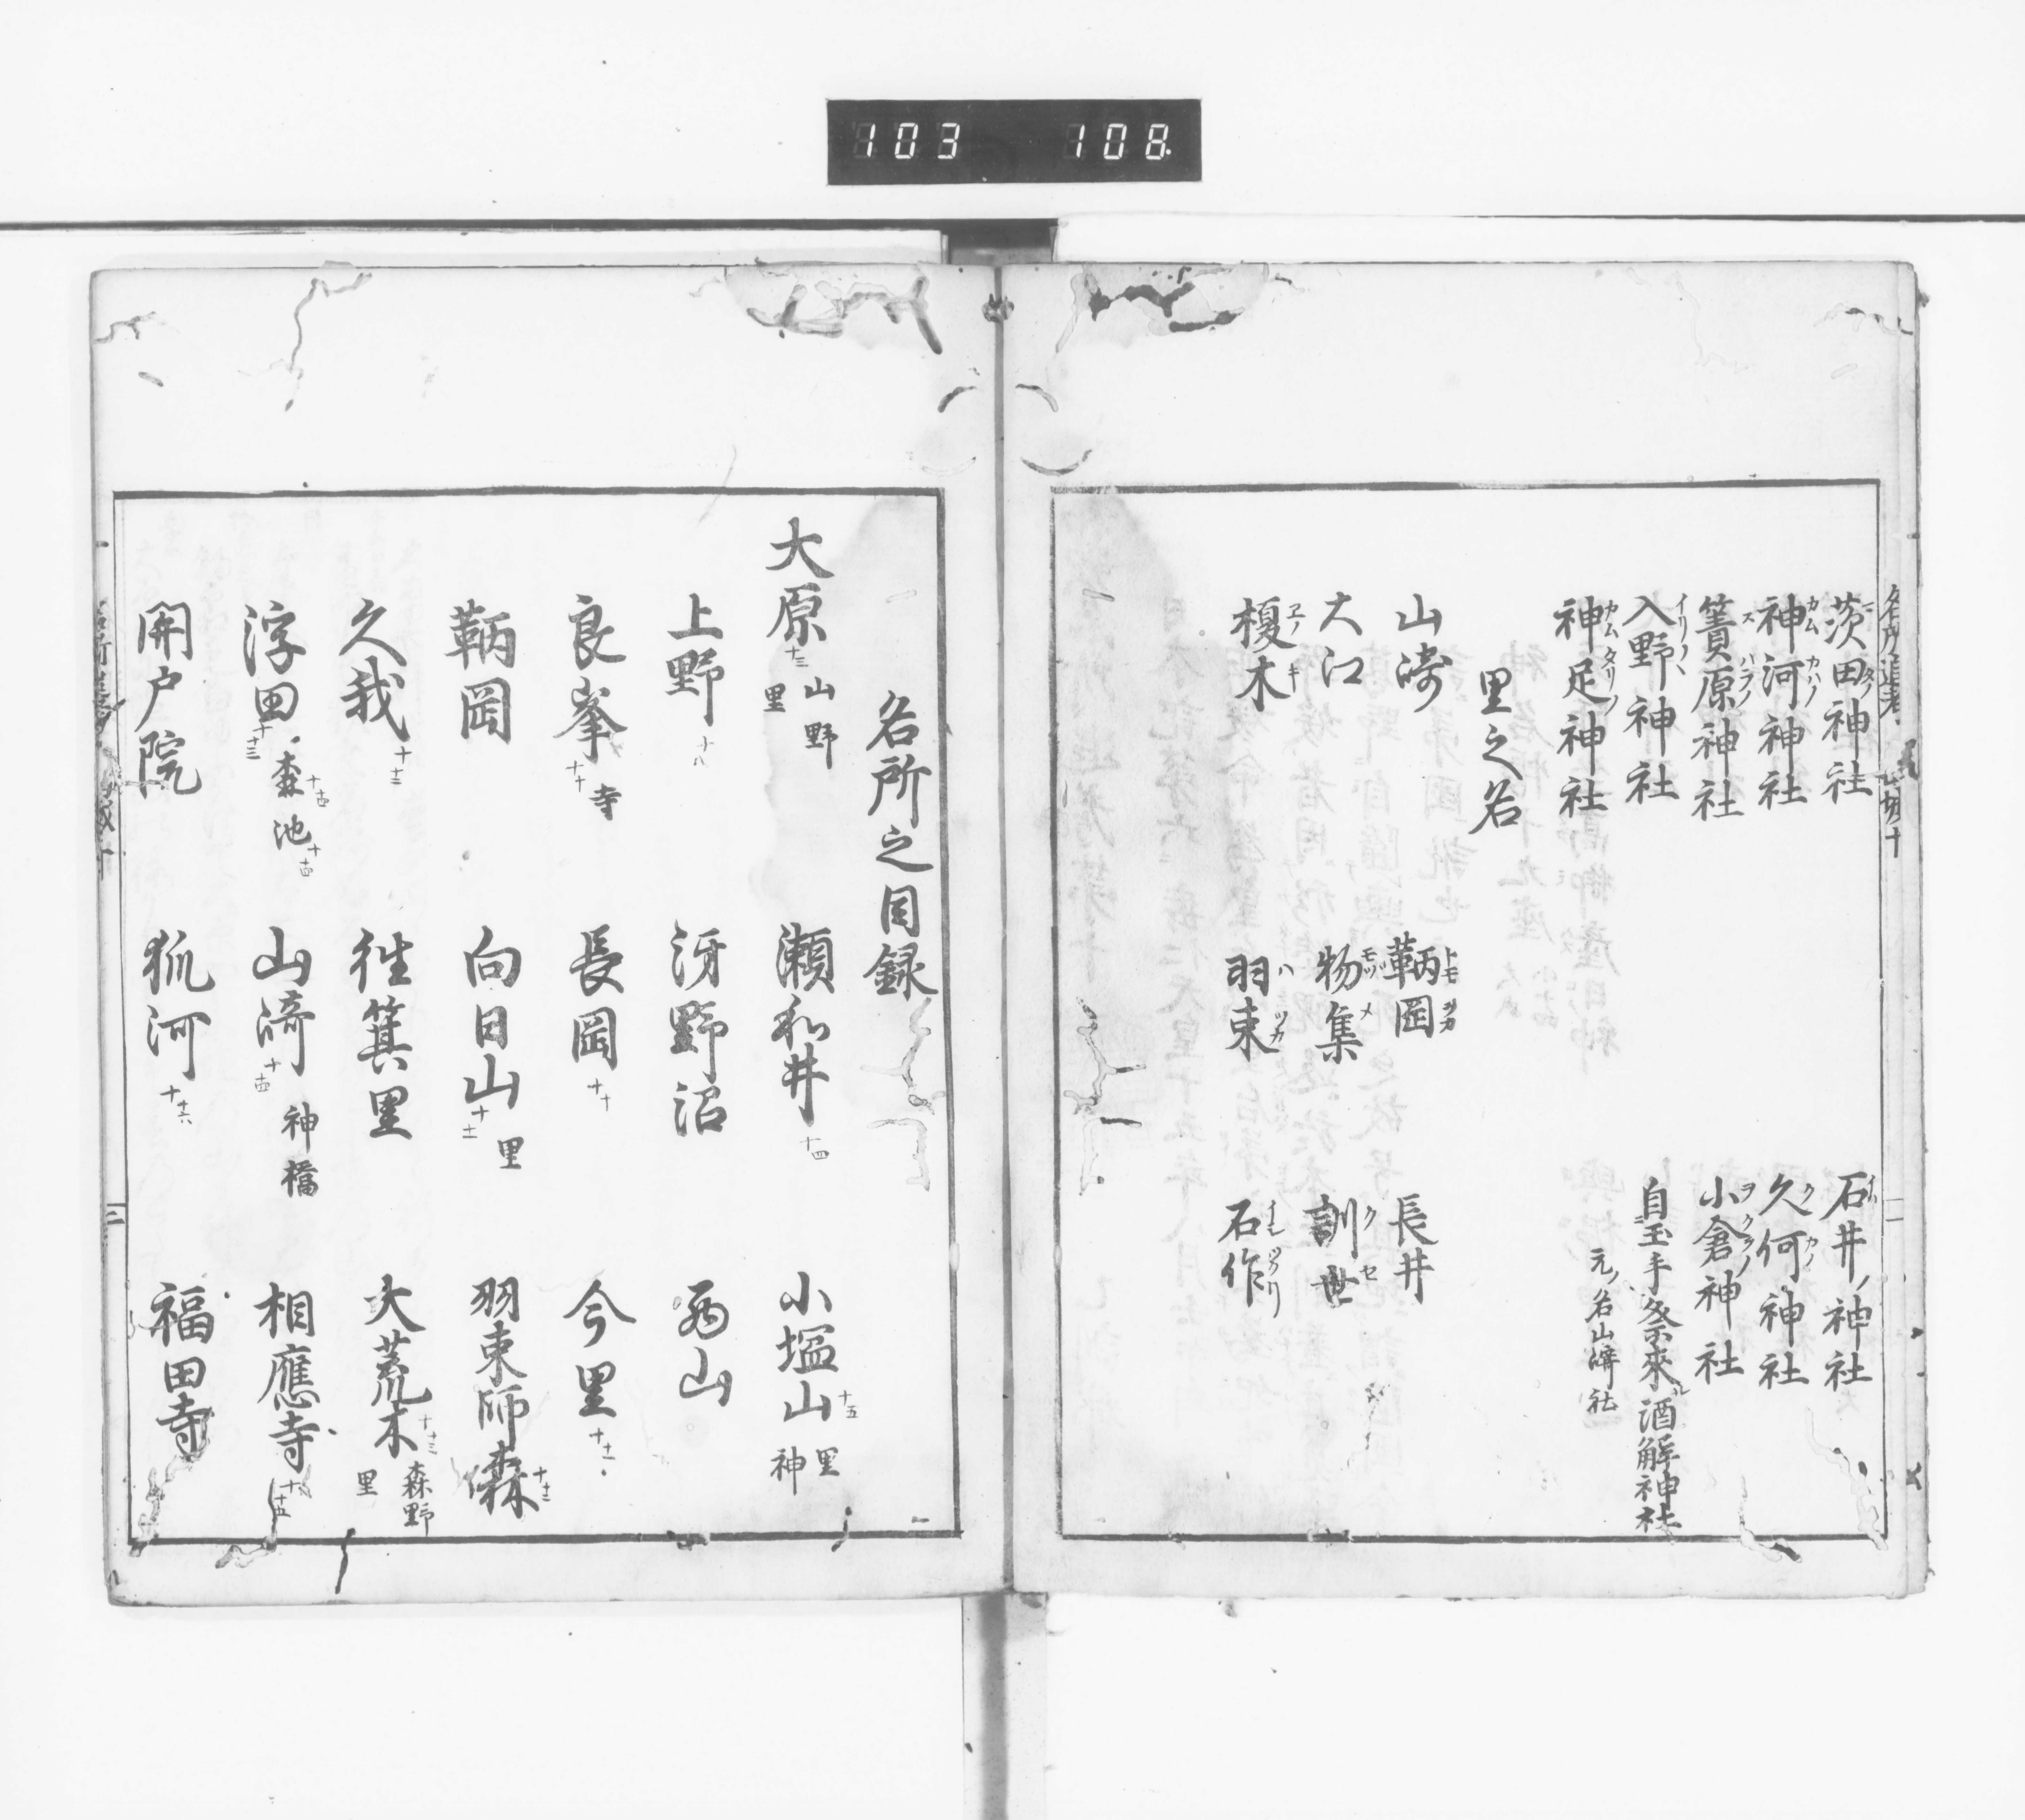 103 108
茨田神社 石井ノ神社
神河神社 久何神社
簀原神社 小倉神社
入野神社 自玉手祭來酒解神社
神足神社 元ノ名山﨑社
里之名
山崎 鞆岡 長井
大江 物集 訓世
榎木 羽束 石作
名所之目録
大原 十三 山野里 瀬和井 十四 小塩山 十五 里神
上野 十八 冴野沼 西山
良峯 寺 長岡 今里
鞆岡 向日山 十二 里 羽束師森 十三
久我 十三 徃箕里 大荒木 十三 森野里
浮田 十三 森 十四 池 十四 山﨑 十四 神橋 相應寺 十五
開戸院 狐河 十六 福田寺